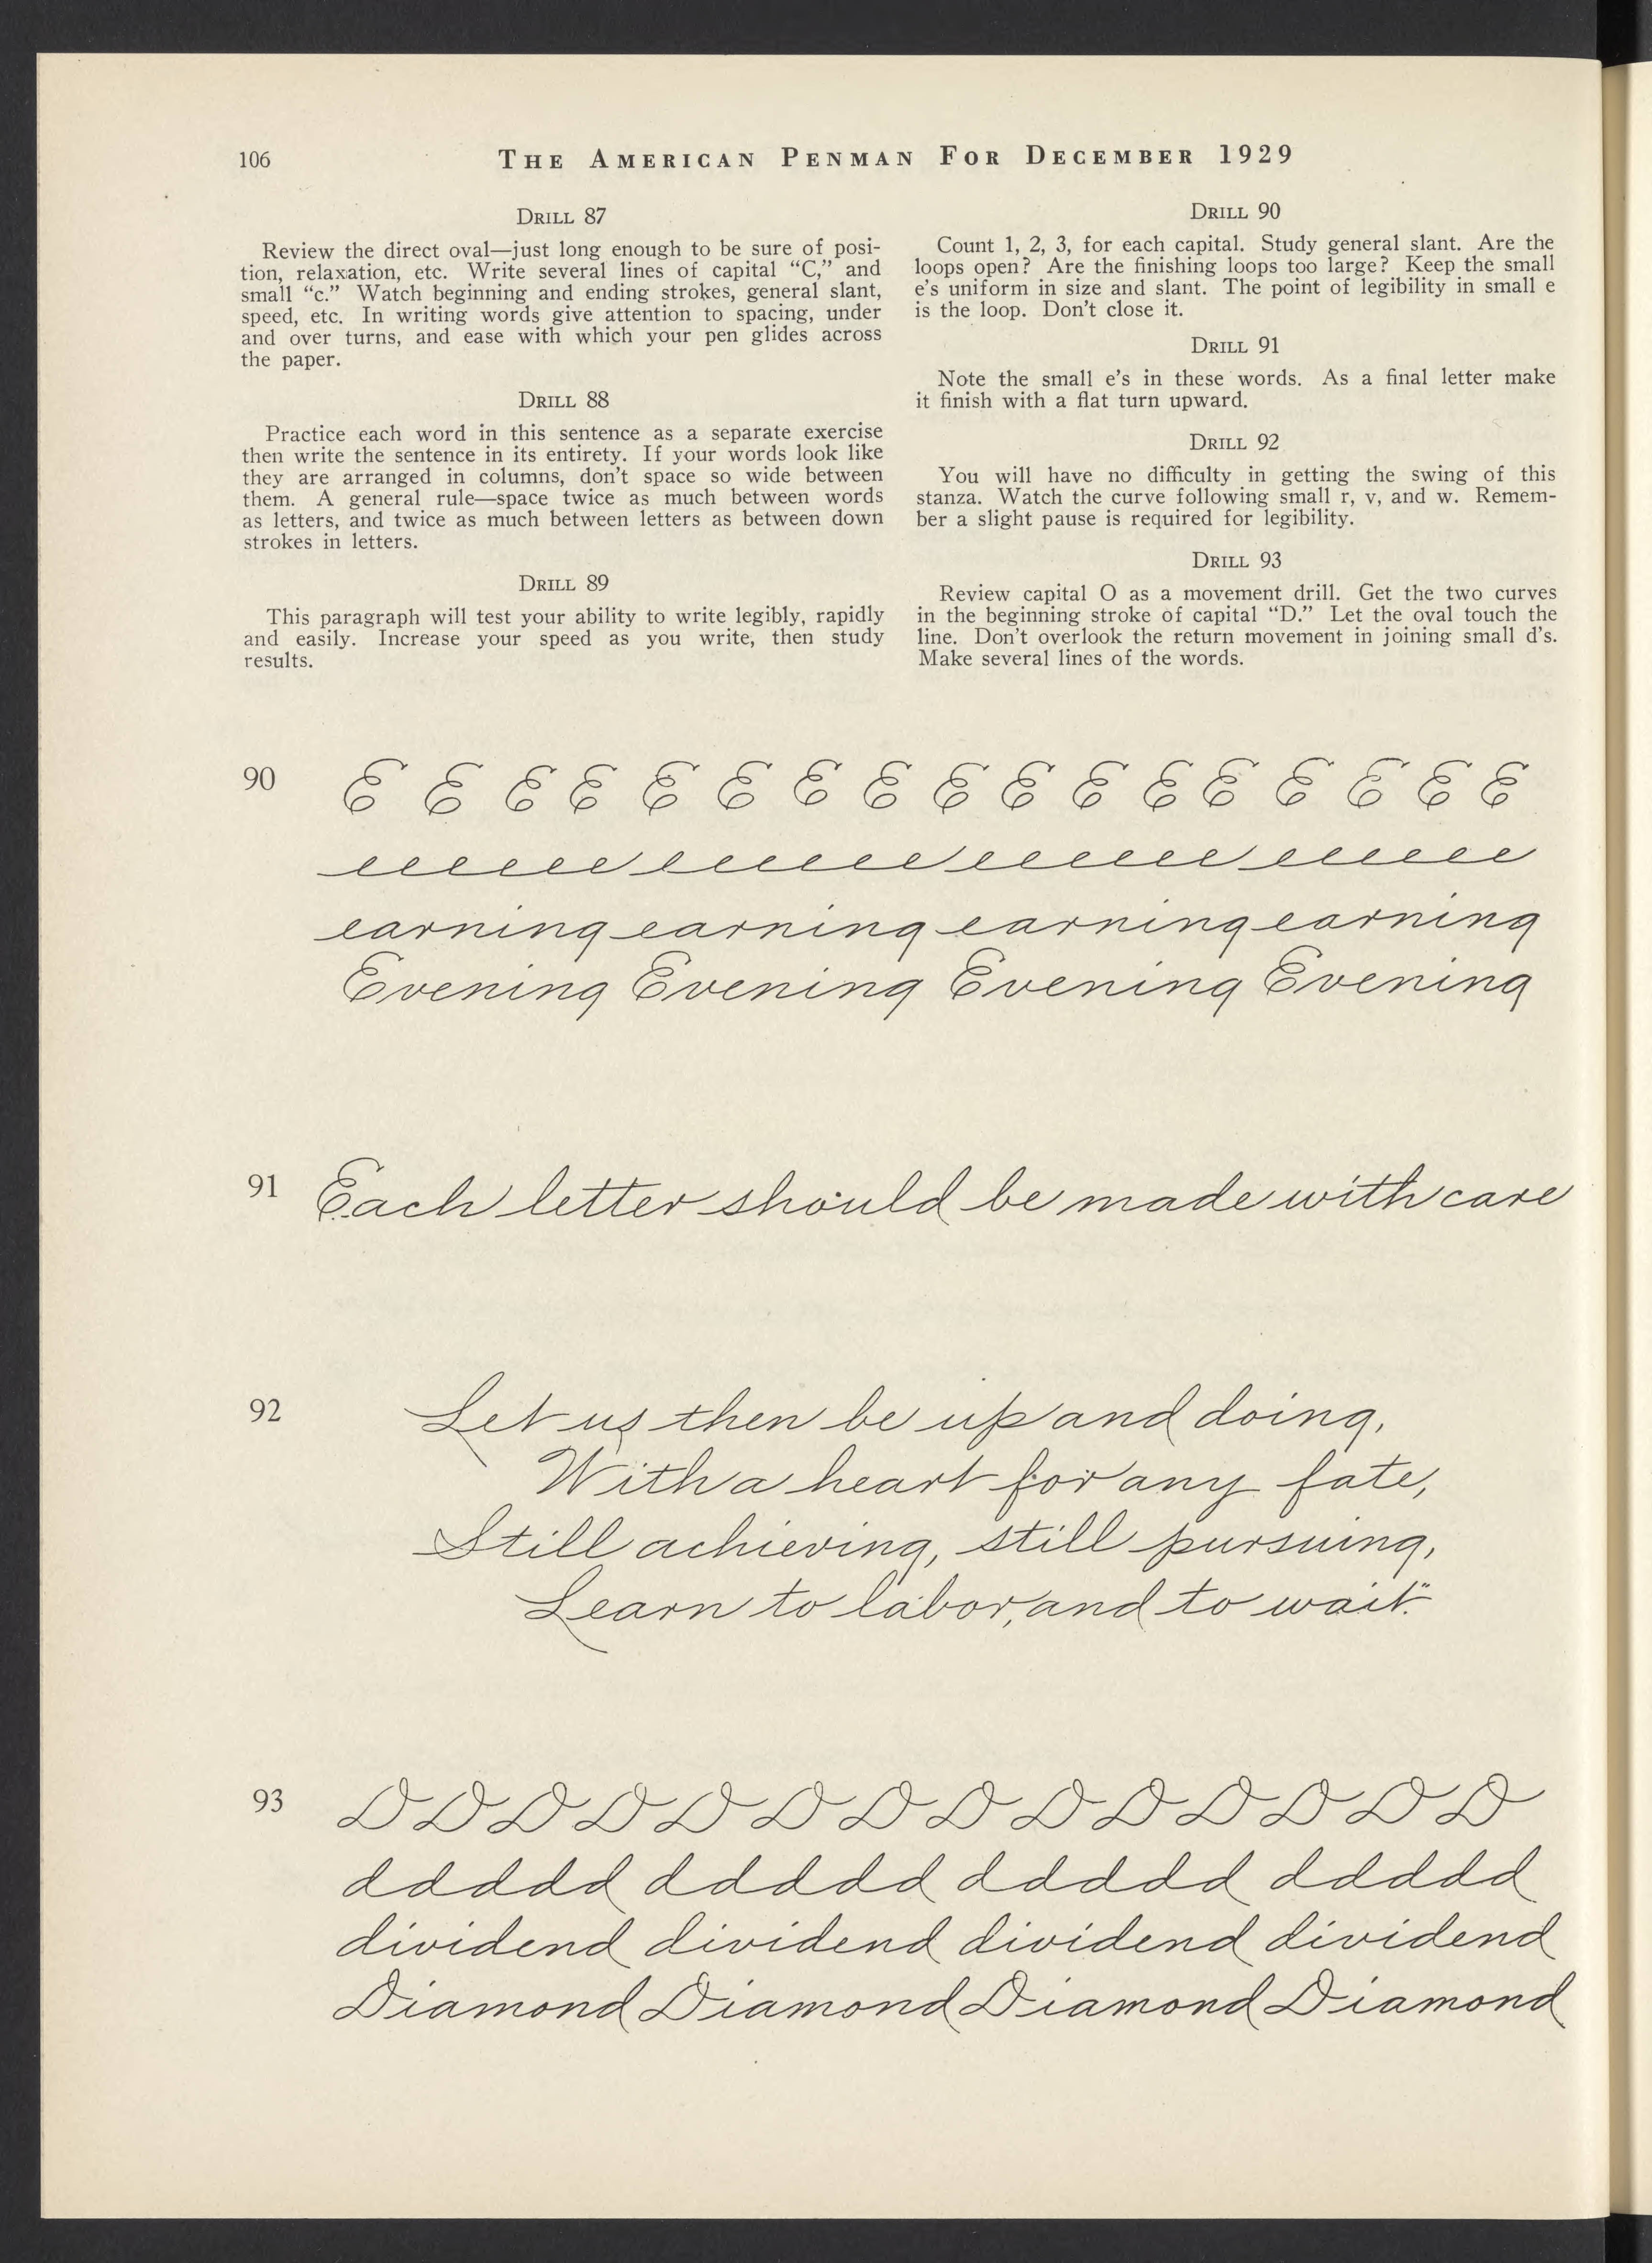 106
THE AMERICAN PENMAN FOR DECEMBER 1929
DRILL 87
Review the direct oval—just long enough to be sure of posi-
tion, relaxation, etc. Write several lines of capital “C,” and
small “c.” Watch beginning and ending strokes, general slant,
speed, etc. In writing words give attention to spacing, under
and over turns, and ease with which your pen glides across
the paper.
DRILL 88
Practice each word in this sentence as a separate exercise
then write the sentence in its entirety. If your words look like
they are arranged in columns, don’t space so wide between
them. A general rule—space twice as much between words
as letters, and twice as much between letters as between down
strokes in letters.
DRILL 89
This paragraph will test your ability to write legibly, rapidly
and easily. Increase your speed as you write, then study
results.
DRILL 90
Count 1, 2, 3, for each capital. Study general slant. Are the
loops open? Are the finishing loops too large? Keep the small
e’s uniform in size and slant. The point of legibility in small e
is the loop. Don’t close it.
DRILL 91
Note the small e’s in these words. As a final letter make
it finish with a flat turn upward.
DRILL 92
You will have no difficulty in getting the swing of this
stanza. Watch the curve following small r, v, and w. Remem-
ber a slight pause is required for legibility.
DRILL 93
Review capital O as a movement drill. Get the two curves
in the beginning stroke of capital “D.” Let the oval touch the
line. Don’t overlook the return movement in joining small d’s.
Make several lines of the words.
90 E E E E E E E E E E E E E E E E E
eeeeee eeeeee eeeeee eeeeee
earning earning earning earning
Evening Evening Evening Evening
91 Each letter should be made with care
92 Let us then be up and doing,
With a heart for any fate,
Still achieving, still pursuing,
Learn to labor, and to wait."
93 D D D D D D D D D D D D D D
ddddd ddddd ddddd ddddd
dividend dividend dividend dividend
Diamond Diamond Diamond Diamond